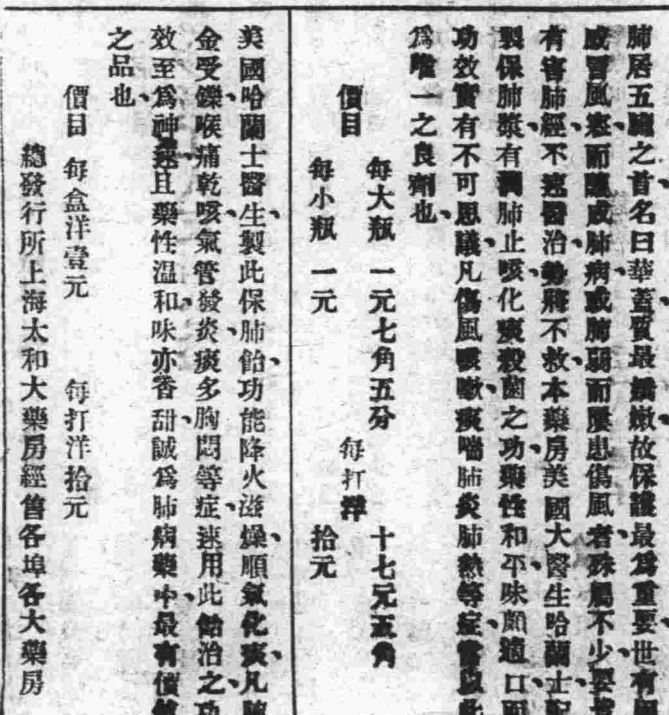 肺居五臟之首名曰華蓋質最嬌嫩故保護最爲重要世有
感冒風寒而嗽或肺病或肺弱而屢患傷風者殊屬不少要
有害肺經不速醫治勢將不救本藥房美國大醫生哈蘭士
製保肺漿有潤肺止咳化痰殺菌之功藥性和平味頗適口而
功效實有不可思議凡傷風咳嗽痰喘肺炎肺熱等症當以此
爲唯一之良劑也
價目 每大瓶 一元七角五分 每打洋 十七元五角
每小瓶 一元 拾元
美國哈蘭士醫生製此保肺飴功能降火滋燥順氣化痰凡肺
金受鑠喉痛乾咳氣管發炎痰多胸悶等症速用此飴治之功
效至爲神速且藥性溫和味亦香甜誠爲肺病藥中最有價値
之品也
價目 每盒洋壹元 每打洋拾元
總發行所上海太和大藥房經售各埠各大藥房